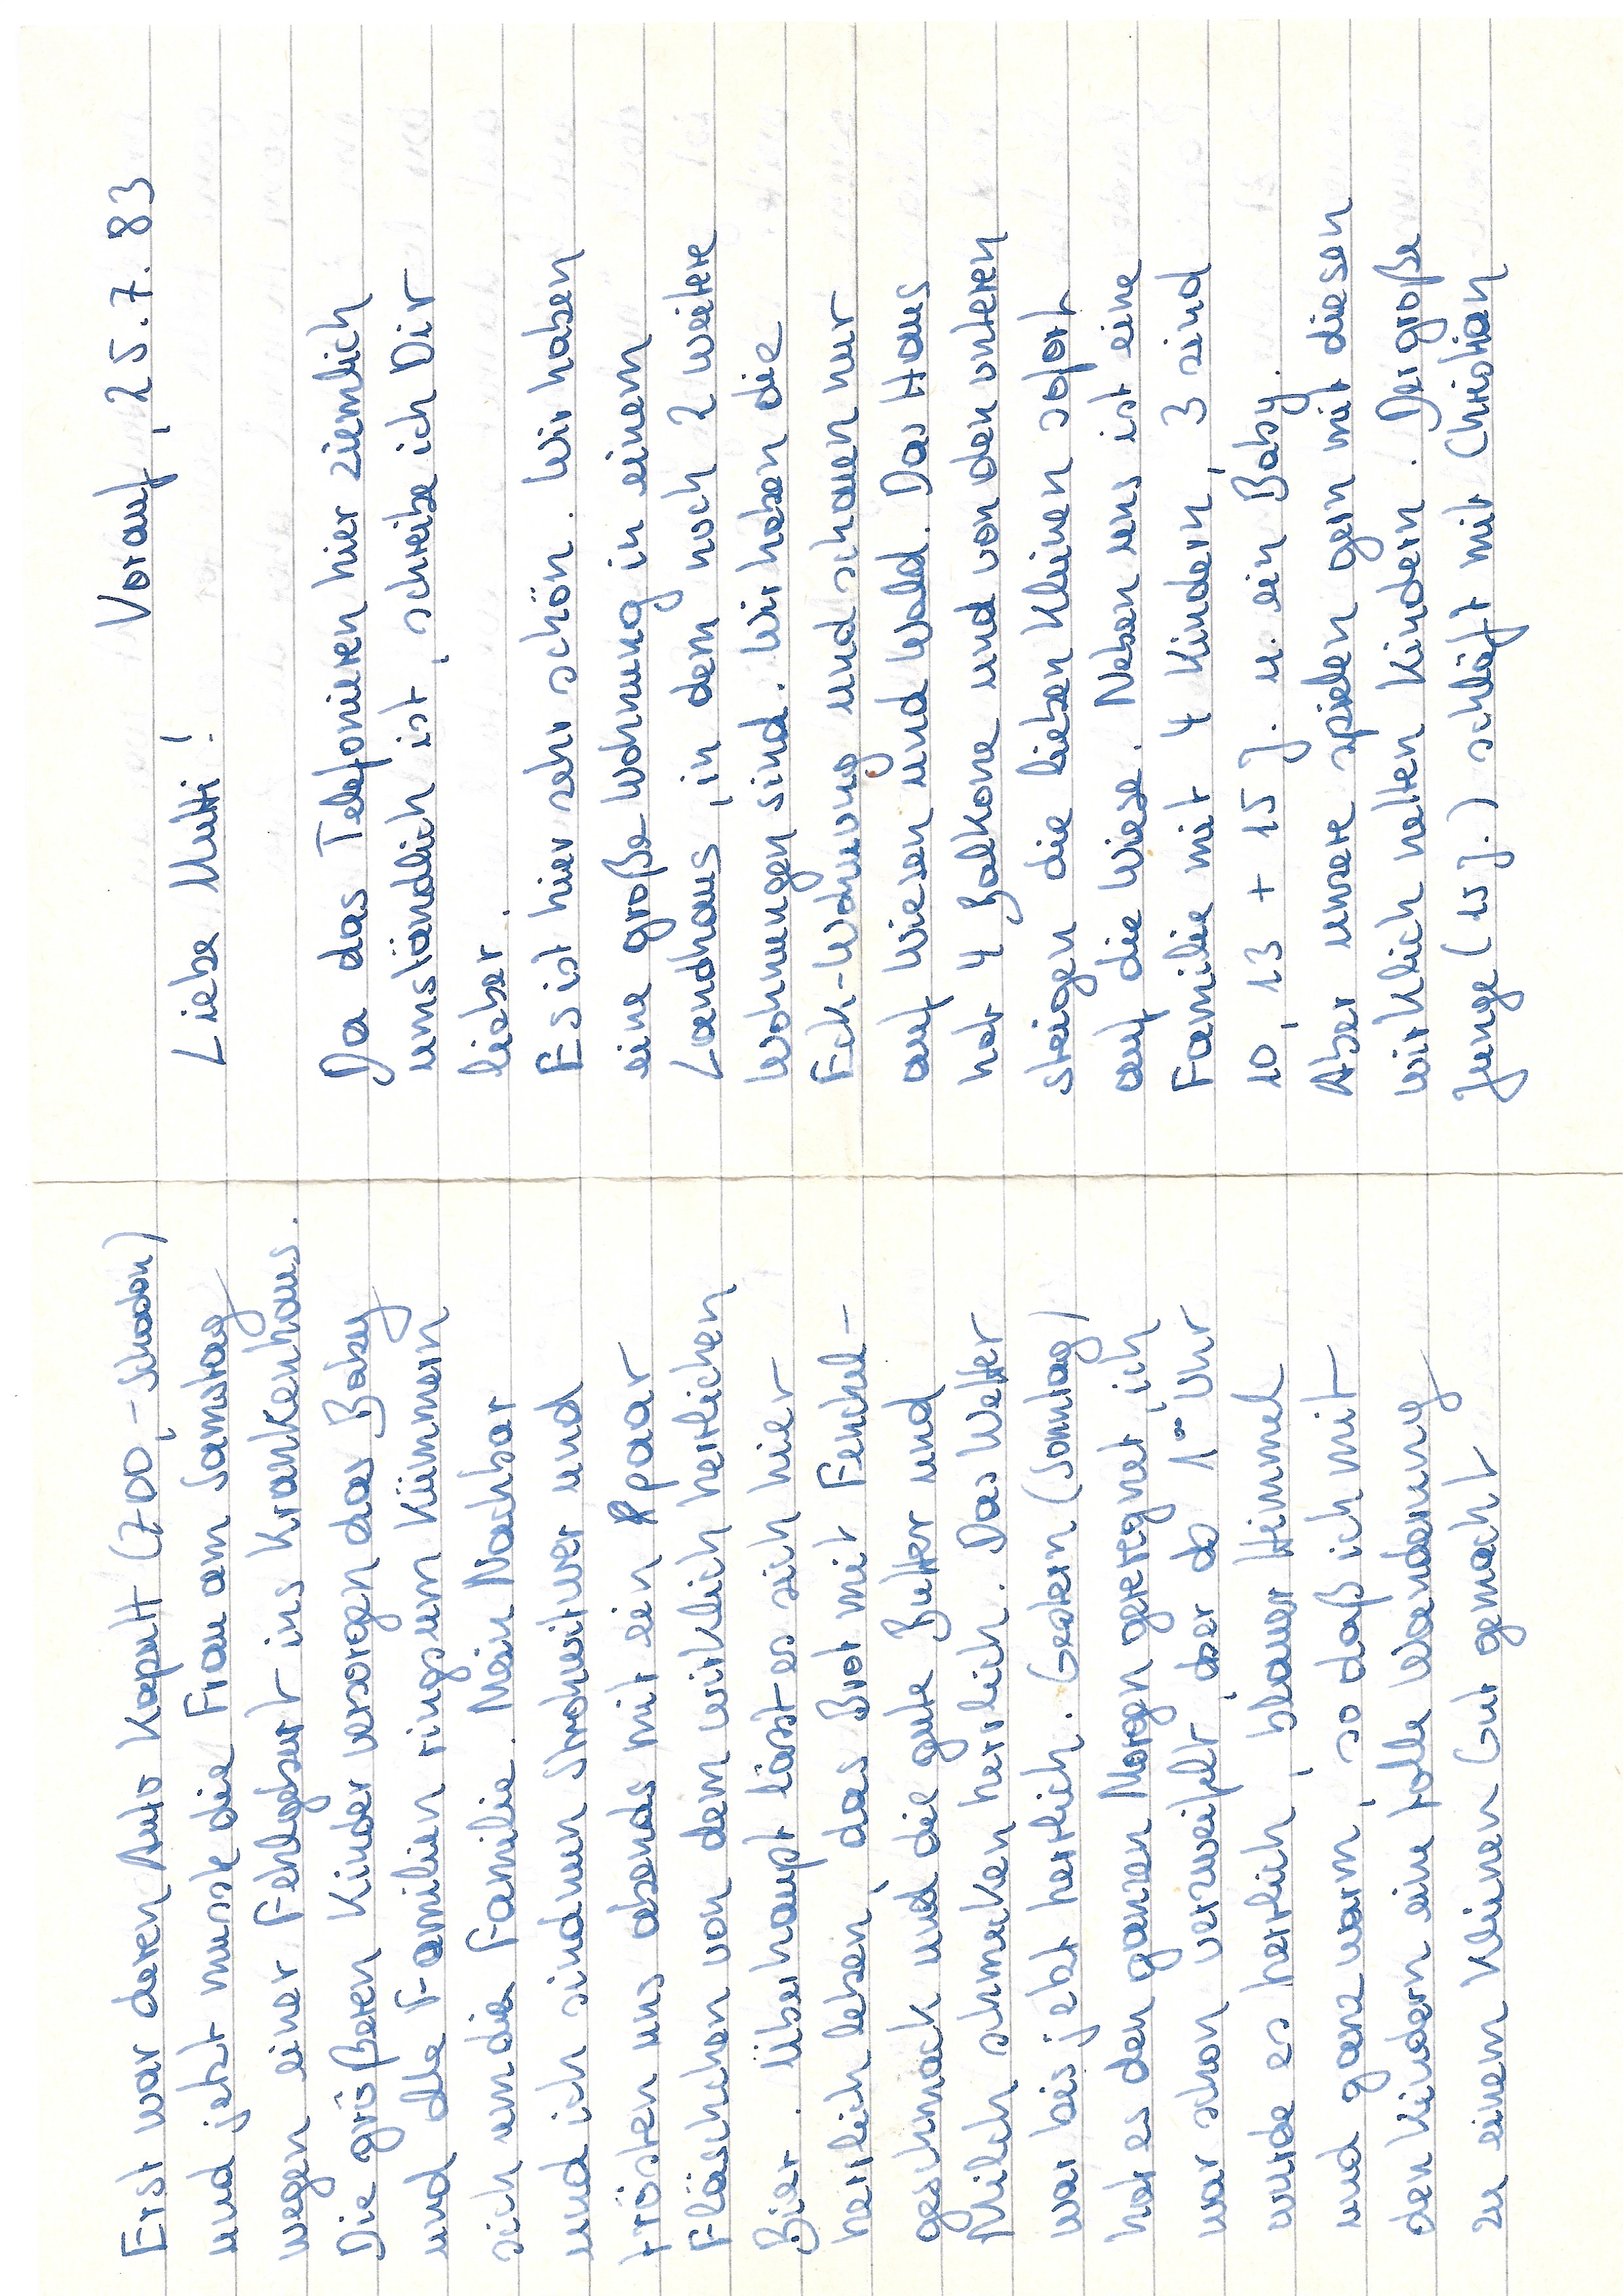 Vorauf, 25.7.83
Liebe Mutti!
Da das Telefonieren hier ziemlich
umständlich ist, schreibe ich Dir
lieber.
Es ist hier sehr schön. Wir haben
eine große Wohnung in einem
Landhaus, in dem noch 2 weitere
Wohnungen sind. Wir haben die
Eck-Wohnung und schauen nur
auf Wiesen und Wald. Das Haus
hat 4 Balkone und von den unteren
steigen die lieben Kleinen sofort
auf die Wiese. Neben uns ist eine
Familie mit 4 Kindern, 3 sind
10, 13 + 15 J. u. ein Baby.
Aber unsere spielen gern mit diesen
wirklich netten Kindern. Der große
Junge (15 J.) schläft mit Christian
Erst war deren Auto kaputt (700,- Schaden)
und jetzt musste die Frau am Samstag
wegen einer Fehlgeburt ins Krankenhaus.
Die größeren Kinder versorgen das Baby
und alle Familien ringsum kümmern
sich um die Familie. Mein Nachbar
und ich sind nun Strohwitwer und
trösten uns abends mit ein paar
Fläschchen von dem wirklich herrlichen
Bier. Überhaupt lässt es sich hier
herrlich leben, das Brot mit Fenchel-
geschmack und die gute Butter und
Milch schmecken herrlich. Das Wetter
war bis jetzt herrlich. Gestern (Sonntag)
hat es den ganzen Morgen geregnet, ich
war schon verzweifelt, aber ab 1⁰⁰ Uhr
wurde es herrlich, blauer Himmel
und ganz warm, so daß ich mit
den Kindern eine tolle Wanderung
zu einem kleinen Gut gemacht